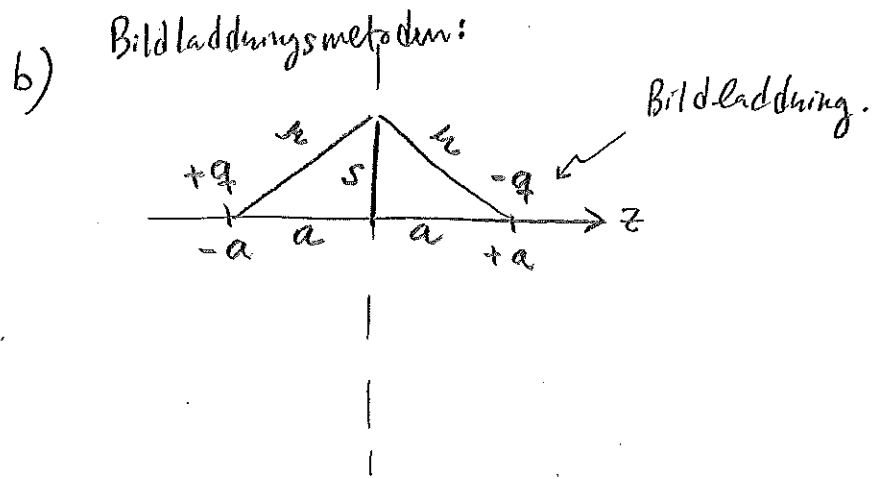 b) Bildladdningsmetoden:
Bildladdning.
r r
+q s -q
z
-a a a +a